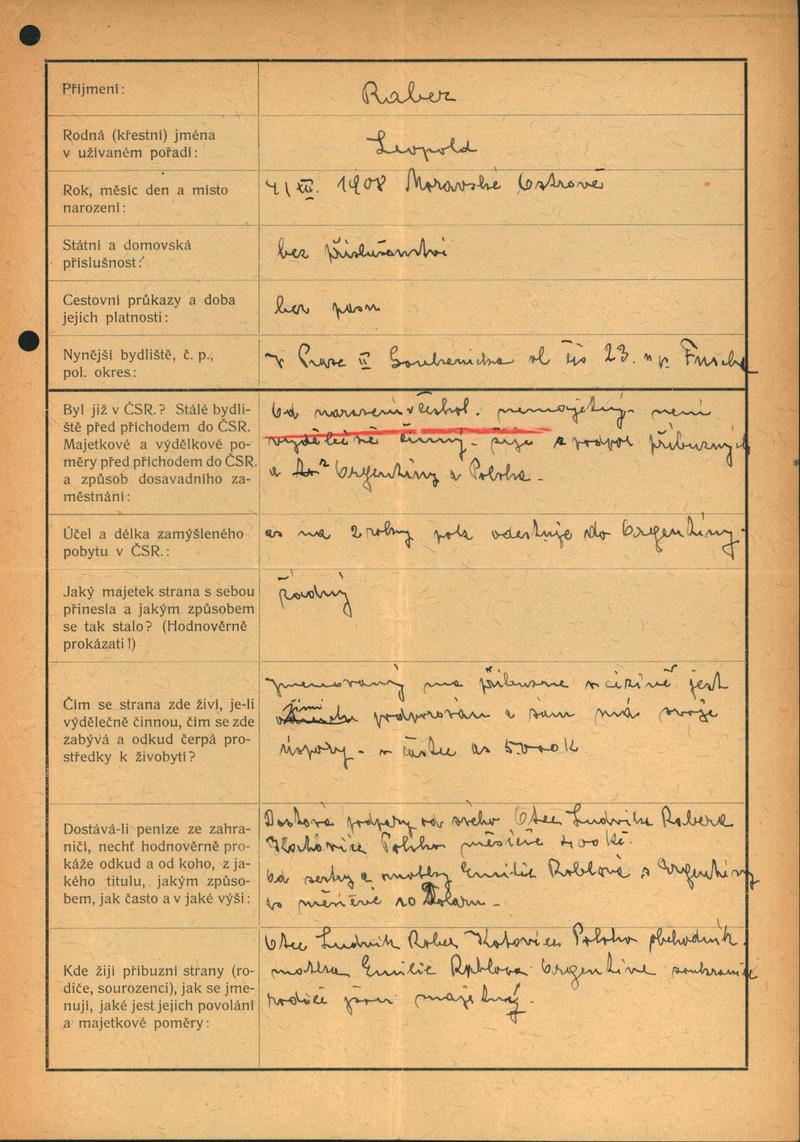 Příjmení:
Raber
Rodná (křestní) jména
v užívaném pořadí:
Leopold
Rok, měsíc den a místo
narození:
4/XII. 1908 Moravské Ostravě
Státní a domovská
příslušnost:
bez příslušenství
Cestovní průkazy a doba
jejich platnosti:
bez pasu
Nynější bydliště, č. p.,
pol. okres:
v Praze II Soukenická ul čís 23.
Byl již v ČSR.? Stálé bydli-
ště před příchodem do ČSR.
Majetkové a výdělkové po-
měry před příchodem do ČSR.
a způsob dosavadního za-
městnání:
Od narození v Českosl. nemajetný. není
výdělečně činný. žije z podpor příbuzných
a Argentiny a Polska.
Účel a délka zamýšleného
pobytu v ČSR.:
as na 2 roky pak odestuje do Argentiny.
Jaký majetek strana s sebou
přinesla a jakým způsobem
se tak stalo? (Hodnověrně
prokázati!)
žádný
Čím se strana zde živí, je-li
výdělečně činnou, čím se zde
zabývá a odkud čerpá pro-
středky k živobytí?
jmenovaný má příbuzné v cizině jest
jimi podporován a sám má svoje
úspory. v částce as 5000 K
Dostává-li peníze ze zahra-
ničí, nechť hodnověrně pro-
káže odkud a od koho, z ja-
kého titulu, jakým způso-
bem, jak často a v jaké výši:
Dostává podpory od svého Otce Ludvíka Rabera
Katovice Polsko měsíčně 400 Kč.
Od sestry a matky Emilie Roblové z Argentiny
měsíčně 10 Dolarů.
Kde žijí příbuzní strany (ro-
diče, sourozenci), jak se jme-
nují, jaké jest jejich povolání
a majetkové poměry:
Otec Ludvík Raber Katovice Polsko obchodník.
matka Emilie Roblova Argentine soukromnice
rodiče jsou majetný.